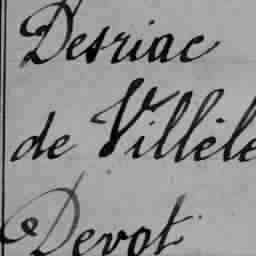 Desriac
de Villèle
Devot